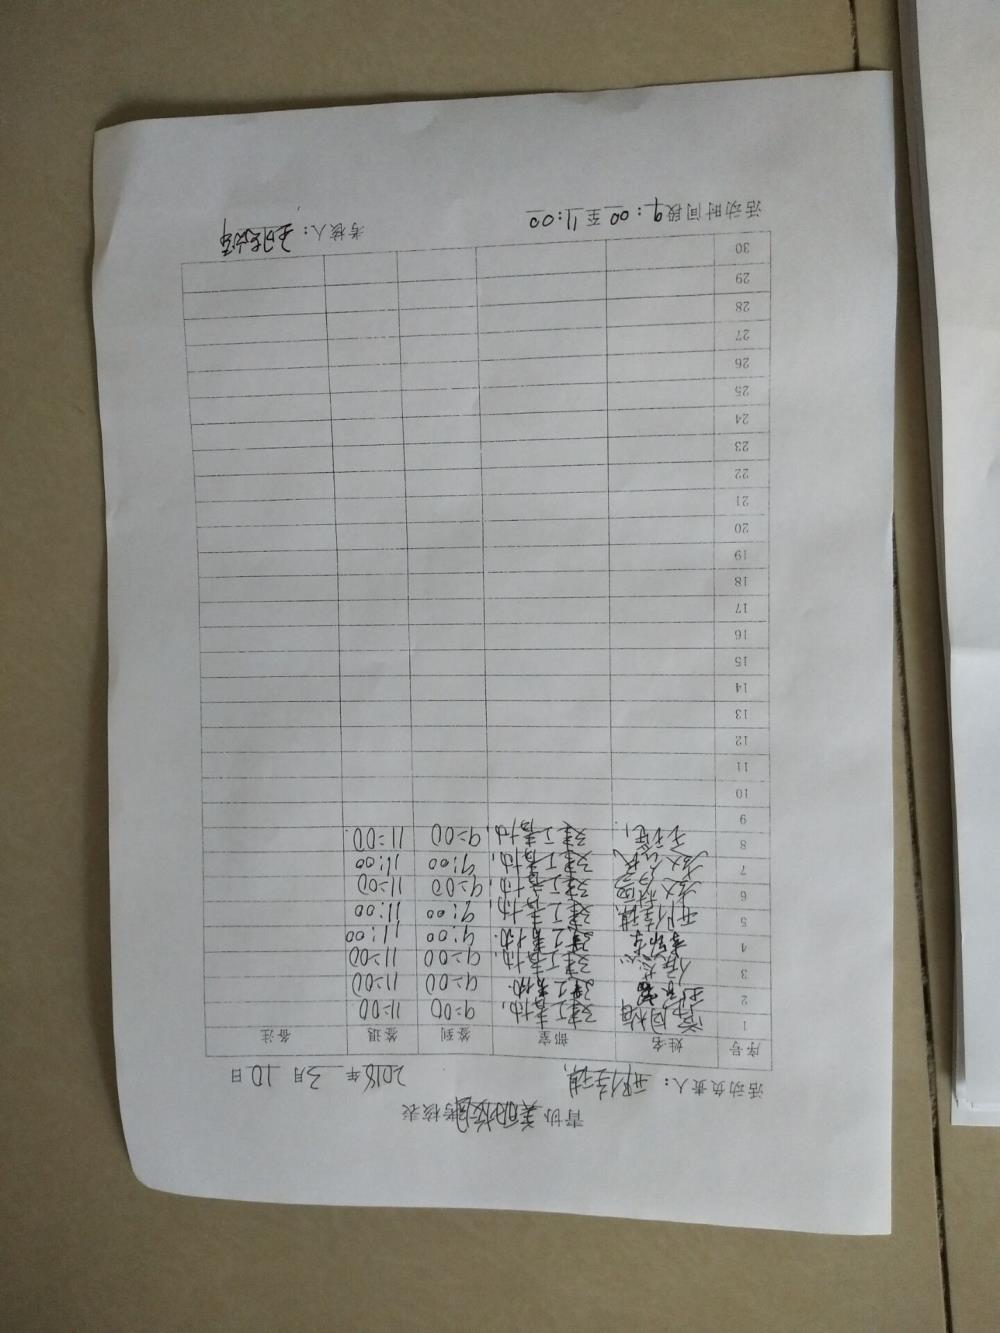 青协美化校园考核表
活动负责人：邢佳琪 2018年 3月 10日
序号 姓名 部室 签到 签退 备注
1 建工青协 9:00 11:00
2 建工青协 9:00 11:00
3 建工青协 9:00 11:00
4 建工青协 9:00 11:00
5 邢佳琪 建工青协 9:00 11:00
6 建工青协 9:00 11:00
7 建工青协 9:00 11:00
8 建工青协 9:00 11:00
9
10
11
12
13
14
15
16
17
18
19
20
21
22
23
24
25
26
27
28
29
30
活动时间段9:00至11:00 考核人：